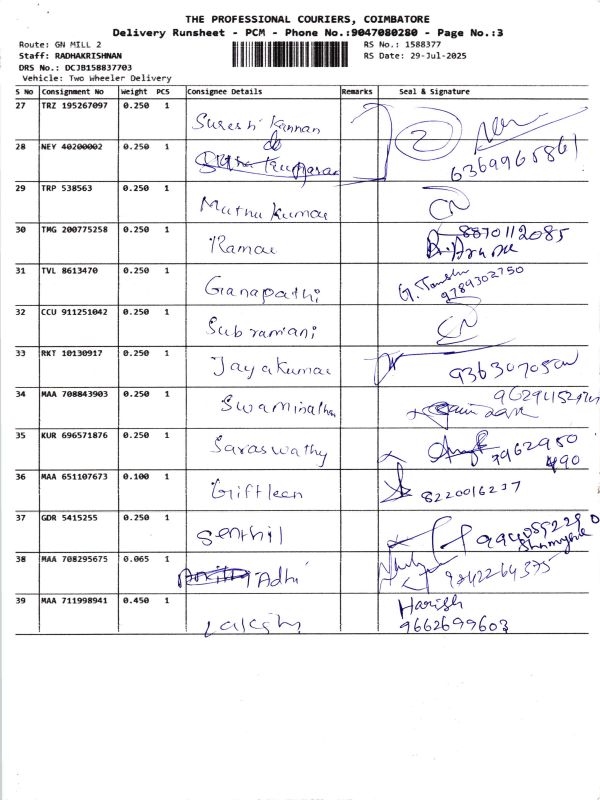 THE PROFESSIONAL COURIERS, COIMBATORE
Delivery Runsheet - PCM - Phone No.:9047080280 - Page No.:3
Route: GN MILL 2 RS No.: 1588377
Staff: RADHAKRISHNAN RS Date: 29-Jul-2025
DRS No.: DCJB158837703
Vehicle: Two Wheeler Delivery
S No Consignment No Weight PCS Consignee Details Remarks Seal & Signature
27 TRZ 195267097 0.250 1 Suresh Kannan 2
28 NEY 40200002 0.250 1 do 6369965861
29 TRP 538563 0.250 1 Muthu Kumar CN
30 TMG 200775258 0.250 1 Ramar 8870112085
31 TVL 8613470 0.250 1 Ganapathi G. 9789302750
32 CCU 911251042 0.250 1 Subramani CN
33 RKT 10130917 0.250 1 Jayakumar
34 MAA 708843903 0.250 1 Swaminathan
35 KUR 696571876 0.250 1 Saraswathy 7962950
490
36 MAA 651107673 0.100 1 Giftleen 8220016237
37 GDR 5415255 0.250 1 Senthil
38 MAA 708295675 0.065 1 Adhi 9842264375
39 MAA 711998941 0.450 1 Lakshmi Harish
9662699603